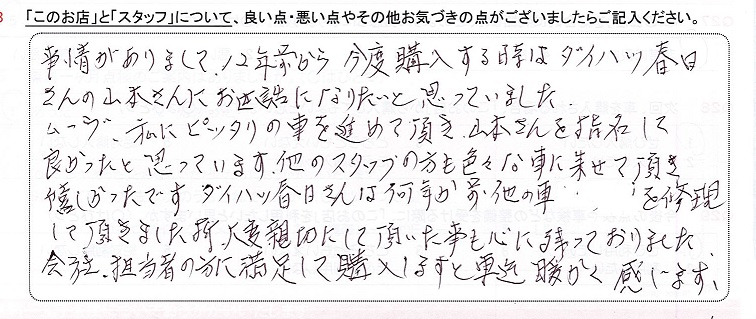 「このお店」と「スタッフ」について、良い点・悪い点やその他お気づきの点がございましたらご記入ください。
事情がありまして、12年前から今度購入する時はダイハツ春日
さんの山本さんにお世話になりたいと思っていました。
ムーヴ、私にピッタリの車を進めて頂き、山本さんを指名して
良かったと思っています。他のスタッフの方も色々な車に乗せて頂き
嬉しかったです ダイハツ春日さんは何年か前、他の車 を修理
して頂きました所、大変親切にして頂いた事も心に残っておりました
会社、担当者の方に満足して購入しますと 車迄 暖かく 感じます、